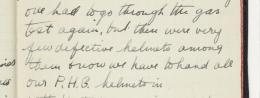 one had to go through the gas
test again, but there were very
few defective helmets among
them & now we have to hand all
our P.H.G. helmets in